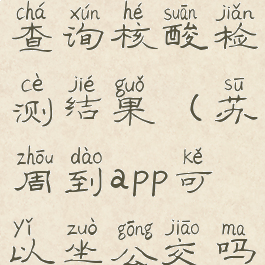 chá xún hé suān jiǎn
查询核酸检
cè jié guǒ sū
测结果（苏
zhōu dào kě
周到app可
yǐ zuò gōng jiāo ma
以坐公交吗